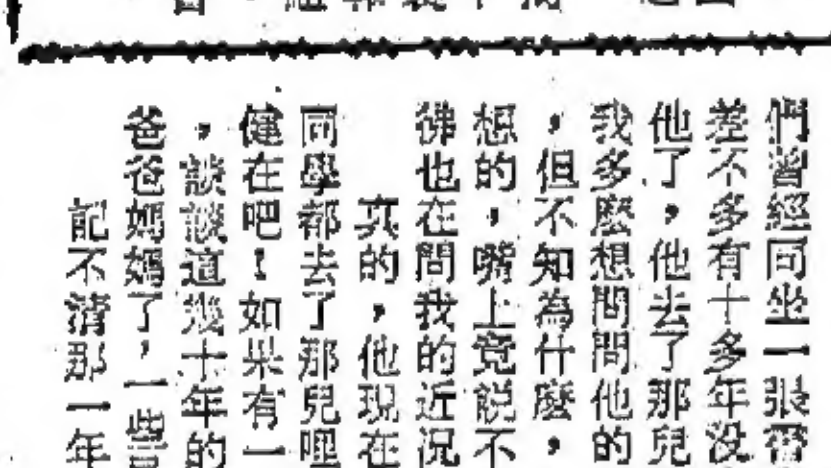 們曾經同坐一張
差不多有十多年没
他了，他去了那兒
我多麼想問問他的
，但不知為什麼，
想的，嘴上竟説不
彿也在問我的近況
真的，他現在
同學都去了那兒哩
健在吧！如果有一
，談談這幾十年的
爸爸媽媽了，一些
記不清那一年